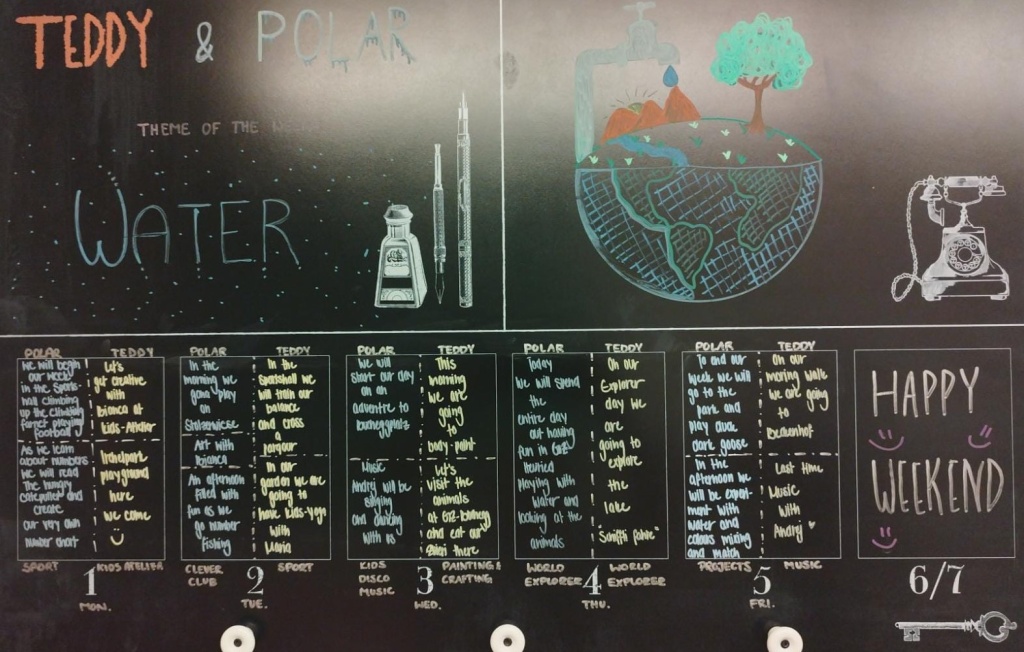 TEDDY & POLAR
THEME OF THE
WATER
POLAR
We will begin
our week
in the Sports-
hall climbing
up the climbing
playing
football
As we learn
about numbers
we will read
The hungry
caterpiller and
create
our very own
number chart
TEDDY
Let's
get creative
with
bianca at
kids-Atelier
playground
here
we come
SPORT
KIDS ATELIER
1
MON.
POLAR
In the
morning we
gona play
on
Stutzerwiese
Art with
bianca
An afternoon
filled with
fun as we
go number
fishing
TEDDY
In the
Sportshall we
will train our
balance
and cross
a
parqour
In our
garden we are
going to
have kids-yoga
with
Maria
CLEVER
CLUB
SPORT
2
TUE.
POLAR
We will
start our day
on an
adventre to
bucheggplatz
Music
Andrej will be
singing
and dancing
with us
TEDDY
This
morning
we are
going
to
body paint
Let's
visit the
animals
at GZ-buchegg
and eat our
there
KIDS
DISCO
MUSIC
PAINTING &
CRAFTING
3
WED.
POLAR
Today
we will spend
the
entire day
out having
fun in GZ-
heuried
playing with
water and
looking at the
animals
TEDDY
On our
Explorer
day we
are
going to
explore
the
lake
WORLD
EXPLORER
WORLD
EXPLORER
4
THU.
POLAR
To end our
week we will
go to the
park and
play duck
duck goose
In the
afternoon we
will be experi-
ment with
water and
colours mixing
and match
TEDDY
On our
morning walk
we are going
to
Last time
Music
with
Andrej
PROJECTS
MUSIC
5
FRI.
HAPPY
WEEKEND
6/7